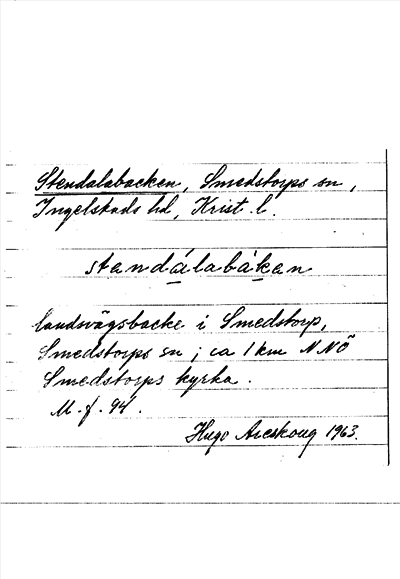 Stendalabacken, Smedstorps sn,
Ingelstads hd, Krist. l.
standálabàkan
landsvägsbacke i Smedstorp,
Smedstorps sn; ca 1 km NNÖ
Smedstorps kyrka.
M. f. 94.
Hugo Areskoug 1963.